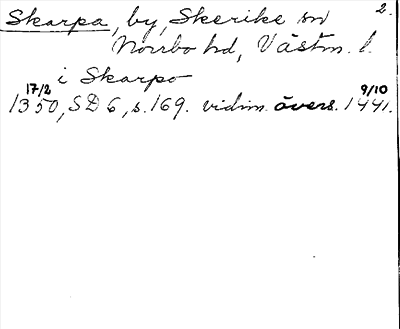 2.
Skarpa, by, Skerike sn
Norrbo hd, Västm. l.
i Skarpo
17/2 9/10
1350, SD 6, s. 169. vidim. övers. 1441.